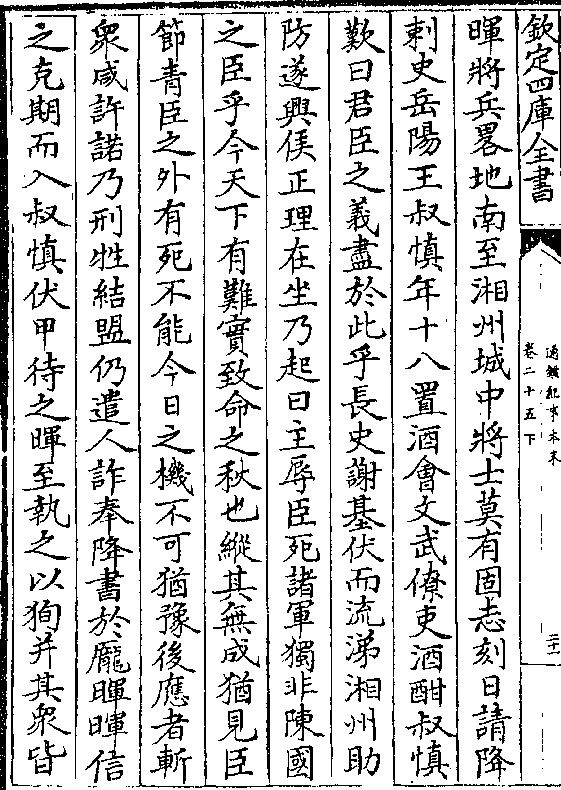 欽定四庫全書
通鑑紀事本末
卷二十五下
二十一
暉將兵畧地南至湘州城中將士莫有固志刻日請降
刺史岳陽王叔慎年十八置酒會文武僚吏酒酣叔慎
歎曰君臣之義盡於此乎長史謝基伏而流涕湘州助
防遂興侯正理在坐乃起曰主辱臣死諸軍獨非陳國
之臣乎今天下有難實致命之秋也縱其無成猶見臣
節青臣之外有死不能今日之機不可猶豫後應者斬
衆咸許諾乃刑牲結盟仍遣人詐奉降書於龐暉暉信
之克期而入叔慎伏甲待之暉至執之以狥并其衆皆